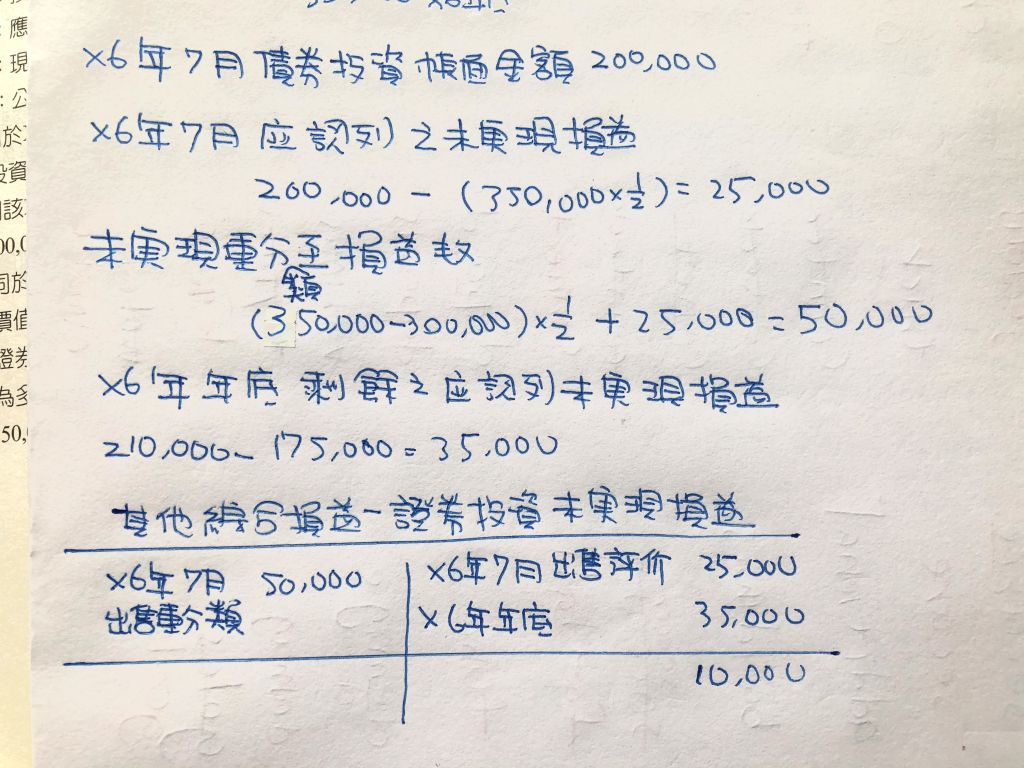 應
現
×6年7月債券投資帳面金額 200,000
: 公
×6年7月 应認列之未実現損益
於
投資
200,000 - (350,000×1/2) = 25,000
該
未実現重分類至損益数
00,0
同於
(350,000-300,000)×1/2 + 25,000 = 50,000
價值
證券
×6年年底 剩餘之应認列未実現損益
為多
50,
210,000 - 175,000 = 35,000
其他綜合損益-證券投資未実現損益
×6年7月 50,000
出售重分類
×6年7月出售評价 25,000
×6年年底 35,000
10,000